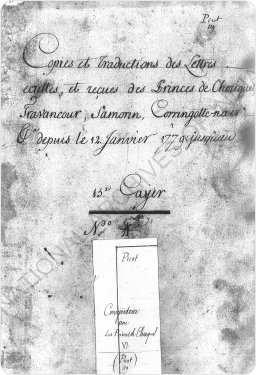 Copies et Traductions des Lettres
ecrittes, et reçues des Princes de Cheriquel
Travancour, Samorin, Corringotte-naïr
&a. depuis le 12. Janvier 1779 jusqu'au
15e. Cayer
N°.
Picot
Les Princes de Cheriquel
VI
(Picot)